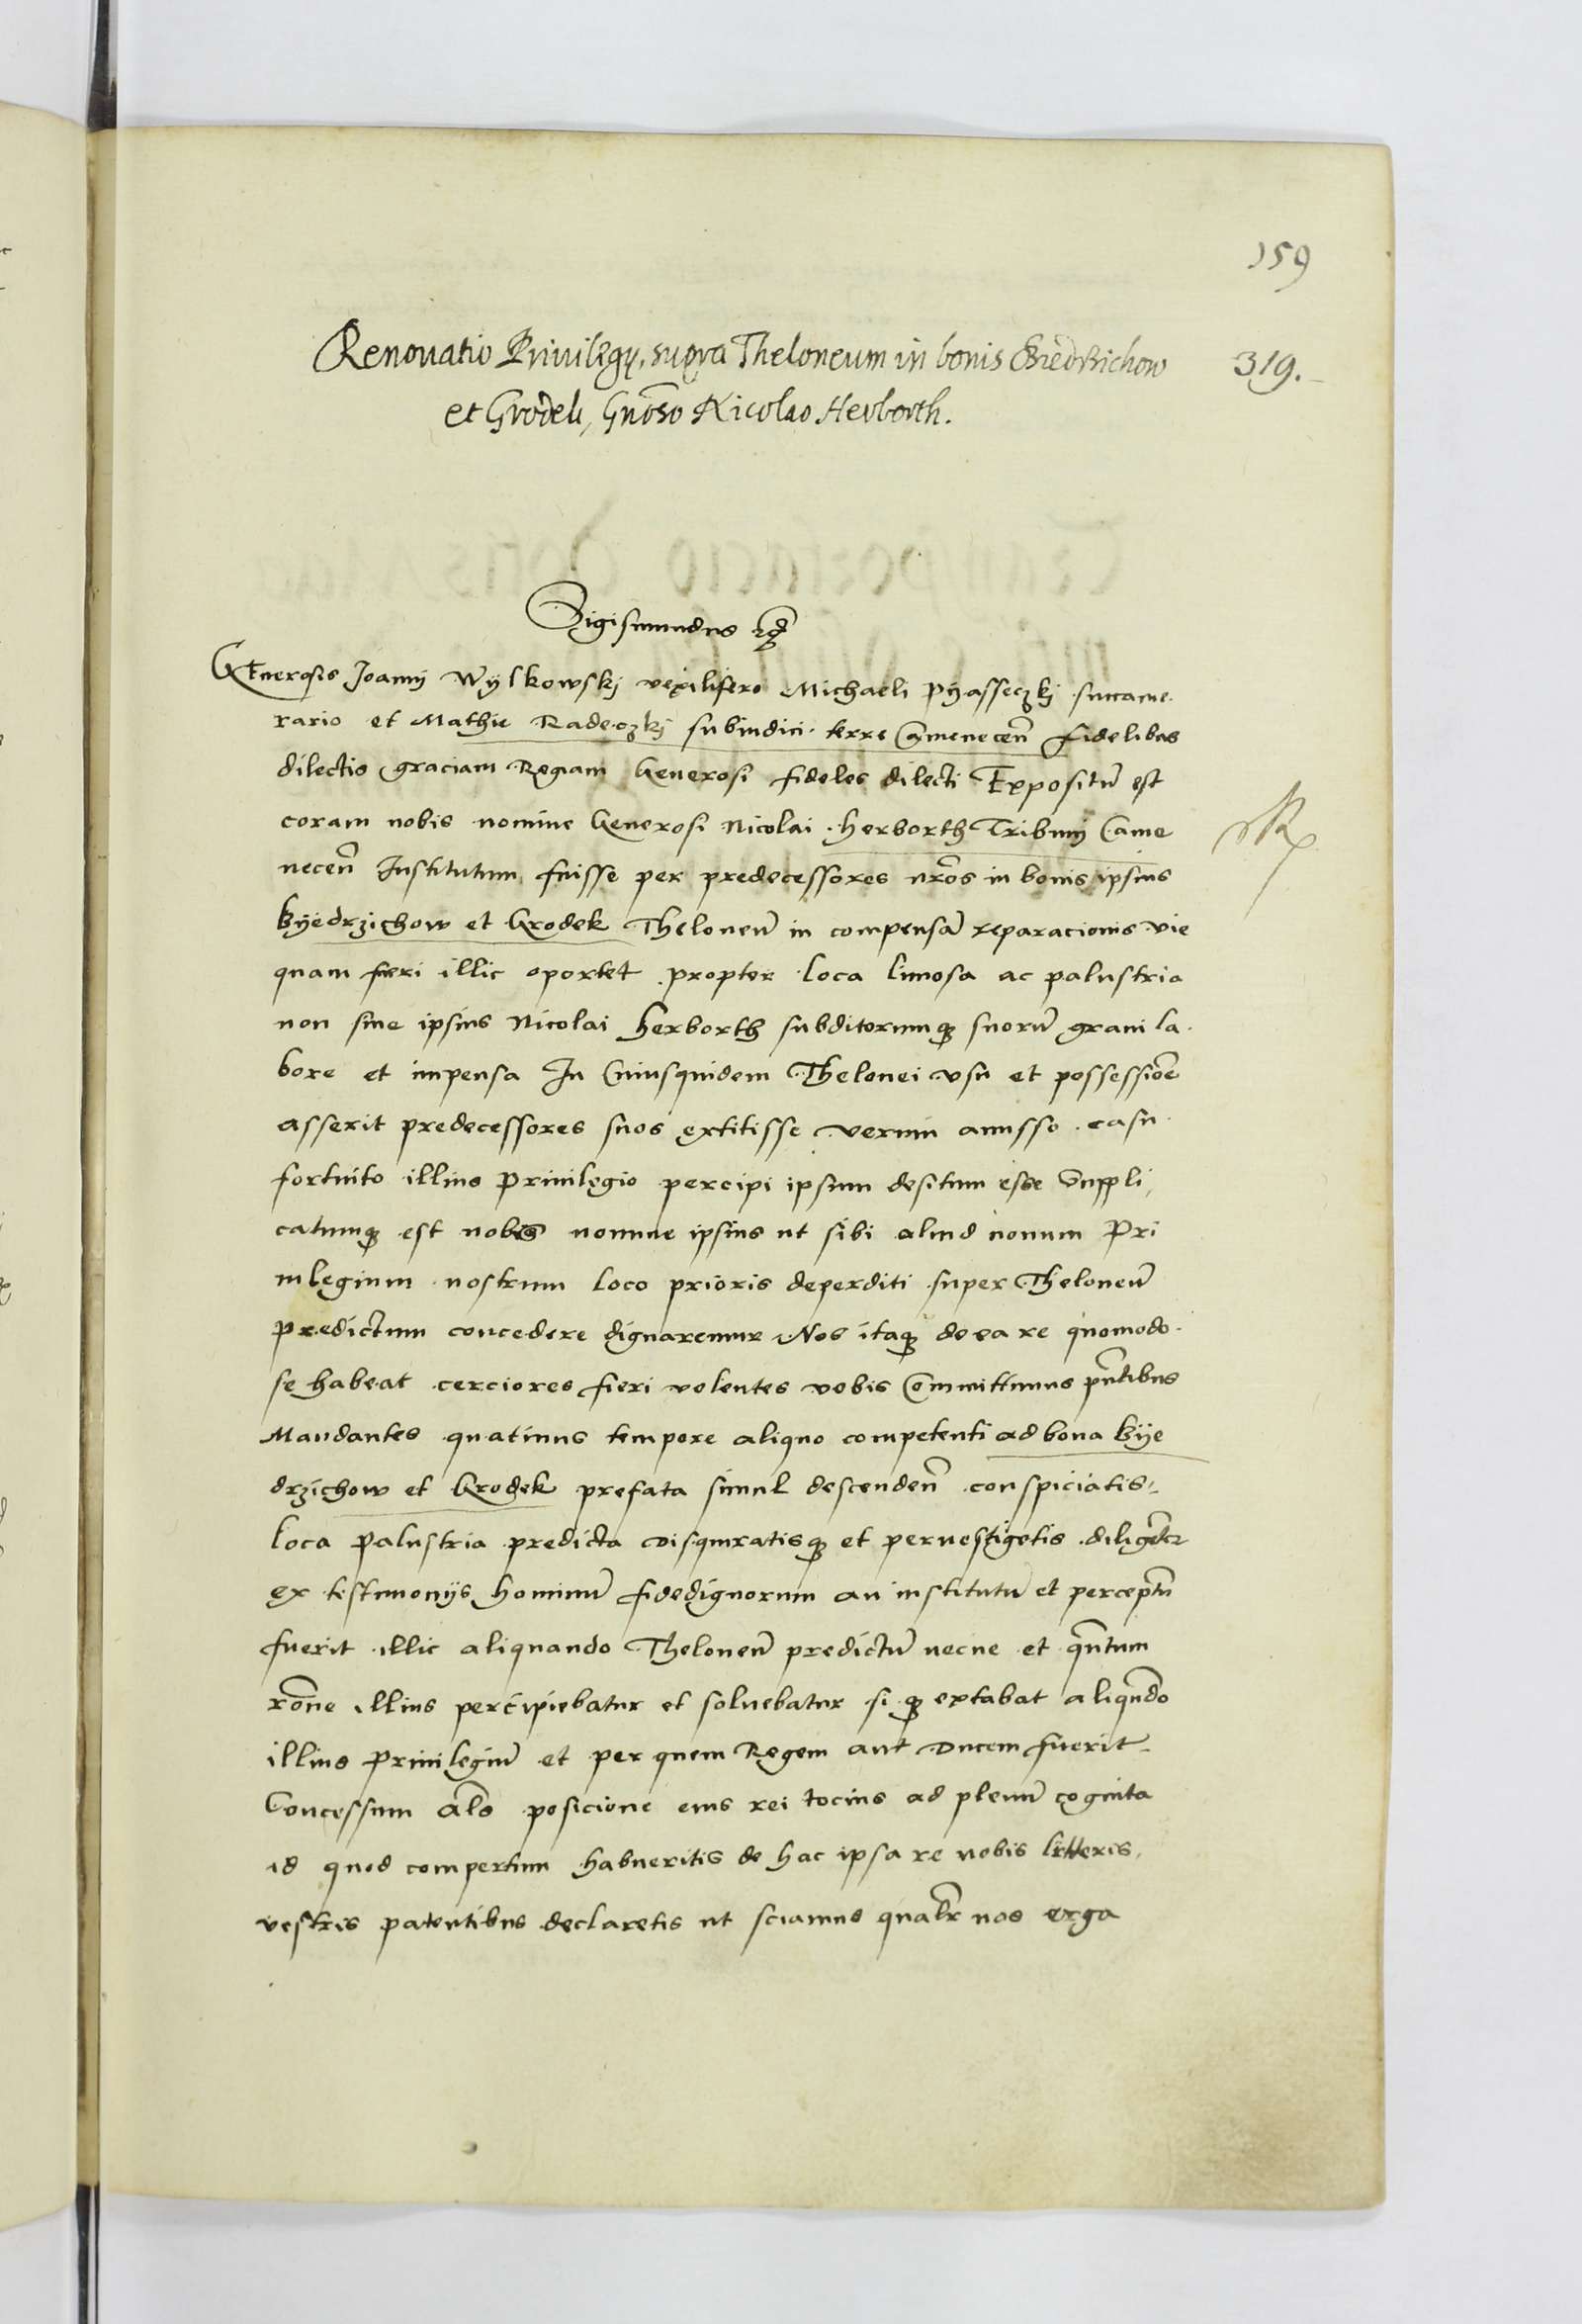 159
Renouatio Priuilegÿ, supra Theloneum in bonis Biedrzichow 319.
et Grodek, Gnōso Nicolao Herborth.
Sigismundus
Generosis Joanni Wylkowskj vexilifero Michaeli Pyasseczkj succame
rario et Mathie Radeczkj subiudici terre Camenecen̄ fidelibus
dilectis graciam Regiam Generosi fideles dilecti Expositū est
coram nobis nomine Generosi Nicolai Herborth Tribuni Came
necen̄ Institutum fuisse per predecessores nr̄os in bonis ipsius
byedrzichow et Grodek Theloneū in compensā reparacionis vie
quam fieri illic oportet propter loca limosa ac palustria
non sine ipsius Nicolai Herborth subditorumqȝ suorū graui la
bore et impensa In Cuiusquidem Thelonei vsu et possessiōe
asserit predecessores suos extitisse verum amisso casu
fortuito illius Priuilegio percipi ipsum desitum esse Suppli
catumqȝ est nobis nomine ipsius ut sibi aliud nouum Pri
uilegium nostrum loco prioris deperditi super Theloneū
predictum concedere dignaremur Nos itaqȝ de ea re quomodo
se habeat cerciores fieri volentes vobis Committimus pn̄tibus
Mandantes quatinus tempore aliquo competenti ad bona bye
drzichow et Grodek prefata simul descenden̄ conspiciatis
loca palustria predicta disquiratisqȝ et peruestigetis diligēter
ex testimonijs hominū fidedignorum an institutū et perceptū
fuerit illic aliquando Theloneū predictū necne et qn̄tum
rōne illius percipiebatur et soluebatur si qȝ extabat aliqn̄do
illius Priuilegiū et per quem Regem aut Ducem fuerit
Concessum posicione eius rei tocius ad plenū cognita
id quod compertum habueritis de hac ipsa re nobis litteris
vestris patentibus declaretis ut sciamus qualr̄ nos erga